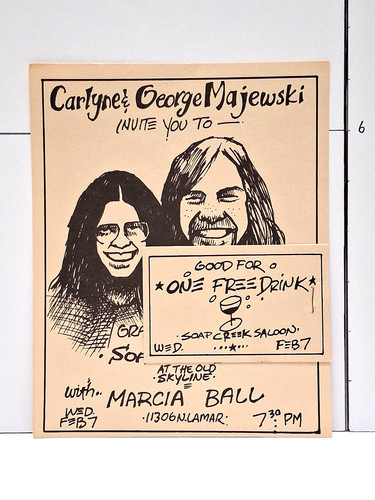 Carlyne & George Majewski
INVITE YOU TO —
GRA
SOA
GOOD FOR
ONE FREE DRINK
SOAP CREEK SALOON
WED. FEB 7
AT THE OLD
SKYLINE
with..
MARCIA BALL
WED.
FEB 7
11306 N. LAMAR.
7:30 PM
6